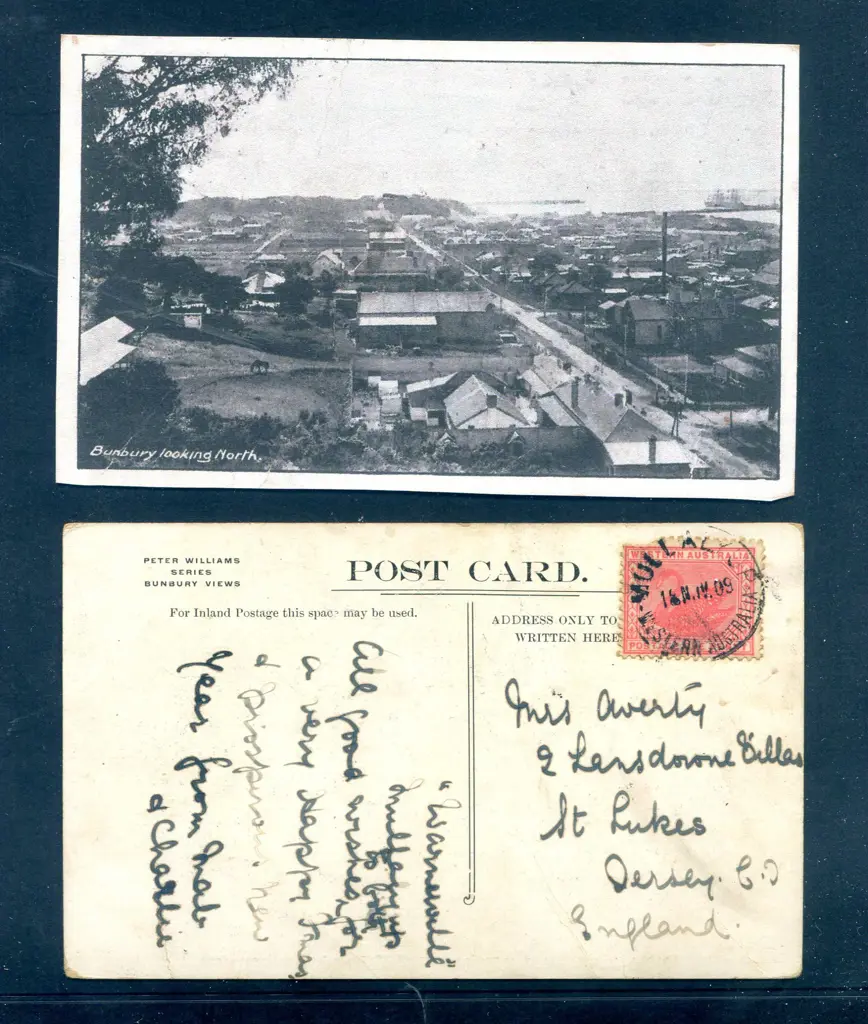 Bunbury looking North.
PETER WILLIAMS
SERIES
BUNBURY VIEWS
POST CARD.
For Inland Postage this space may be used.
ADDRESS ONLY TO
WRITTEN HERE
WESTERN AUSTRALIA
MULLALYUP
IV.09
WESTERN AUSTRALIA
POST
Mrs Averty
2 Lansdowne Villas
St Lukes
Jersey. C.I
England.
"Warneville"
Mullalyup
All good wishes for
a very Happy Xmas
& prosperous New
Year from Mab
& Charlie